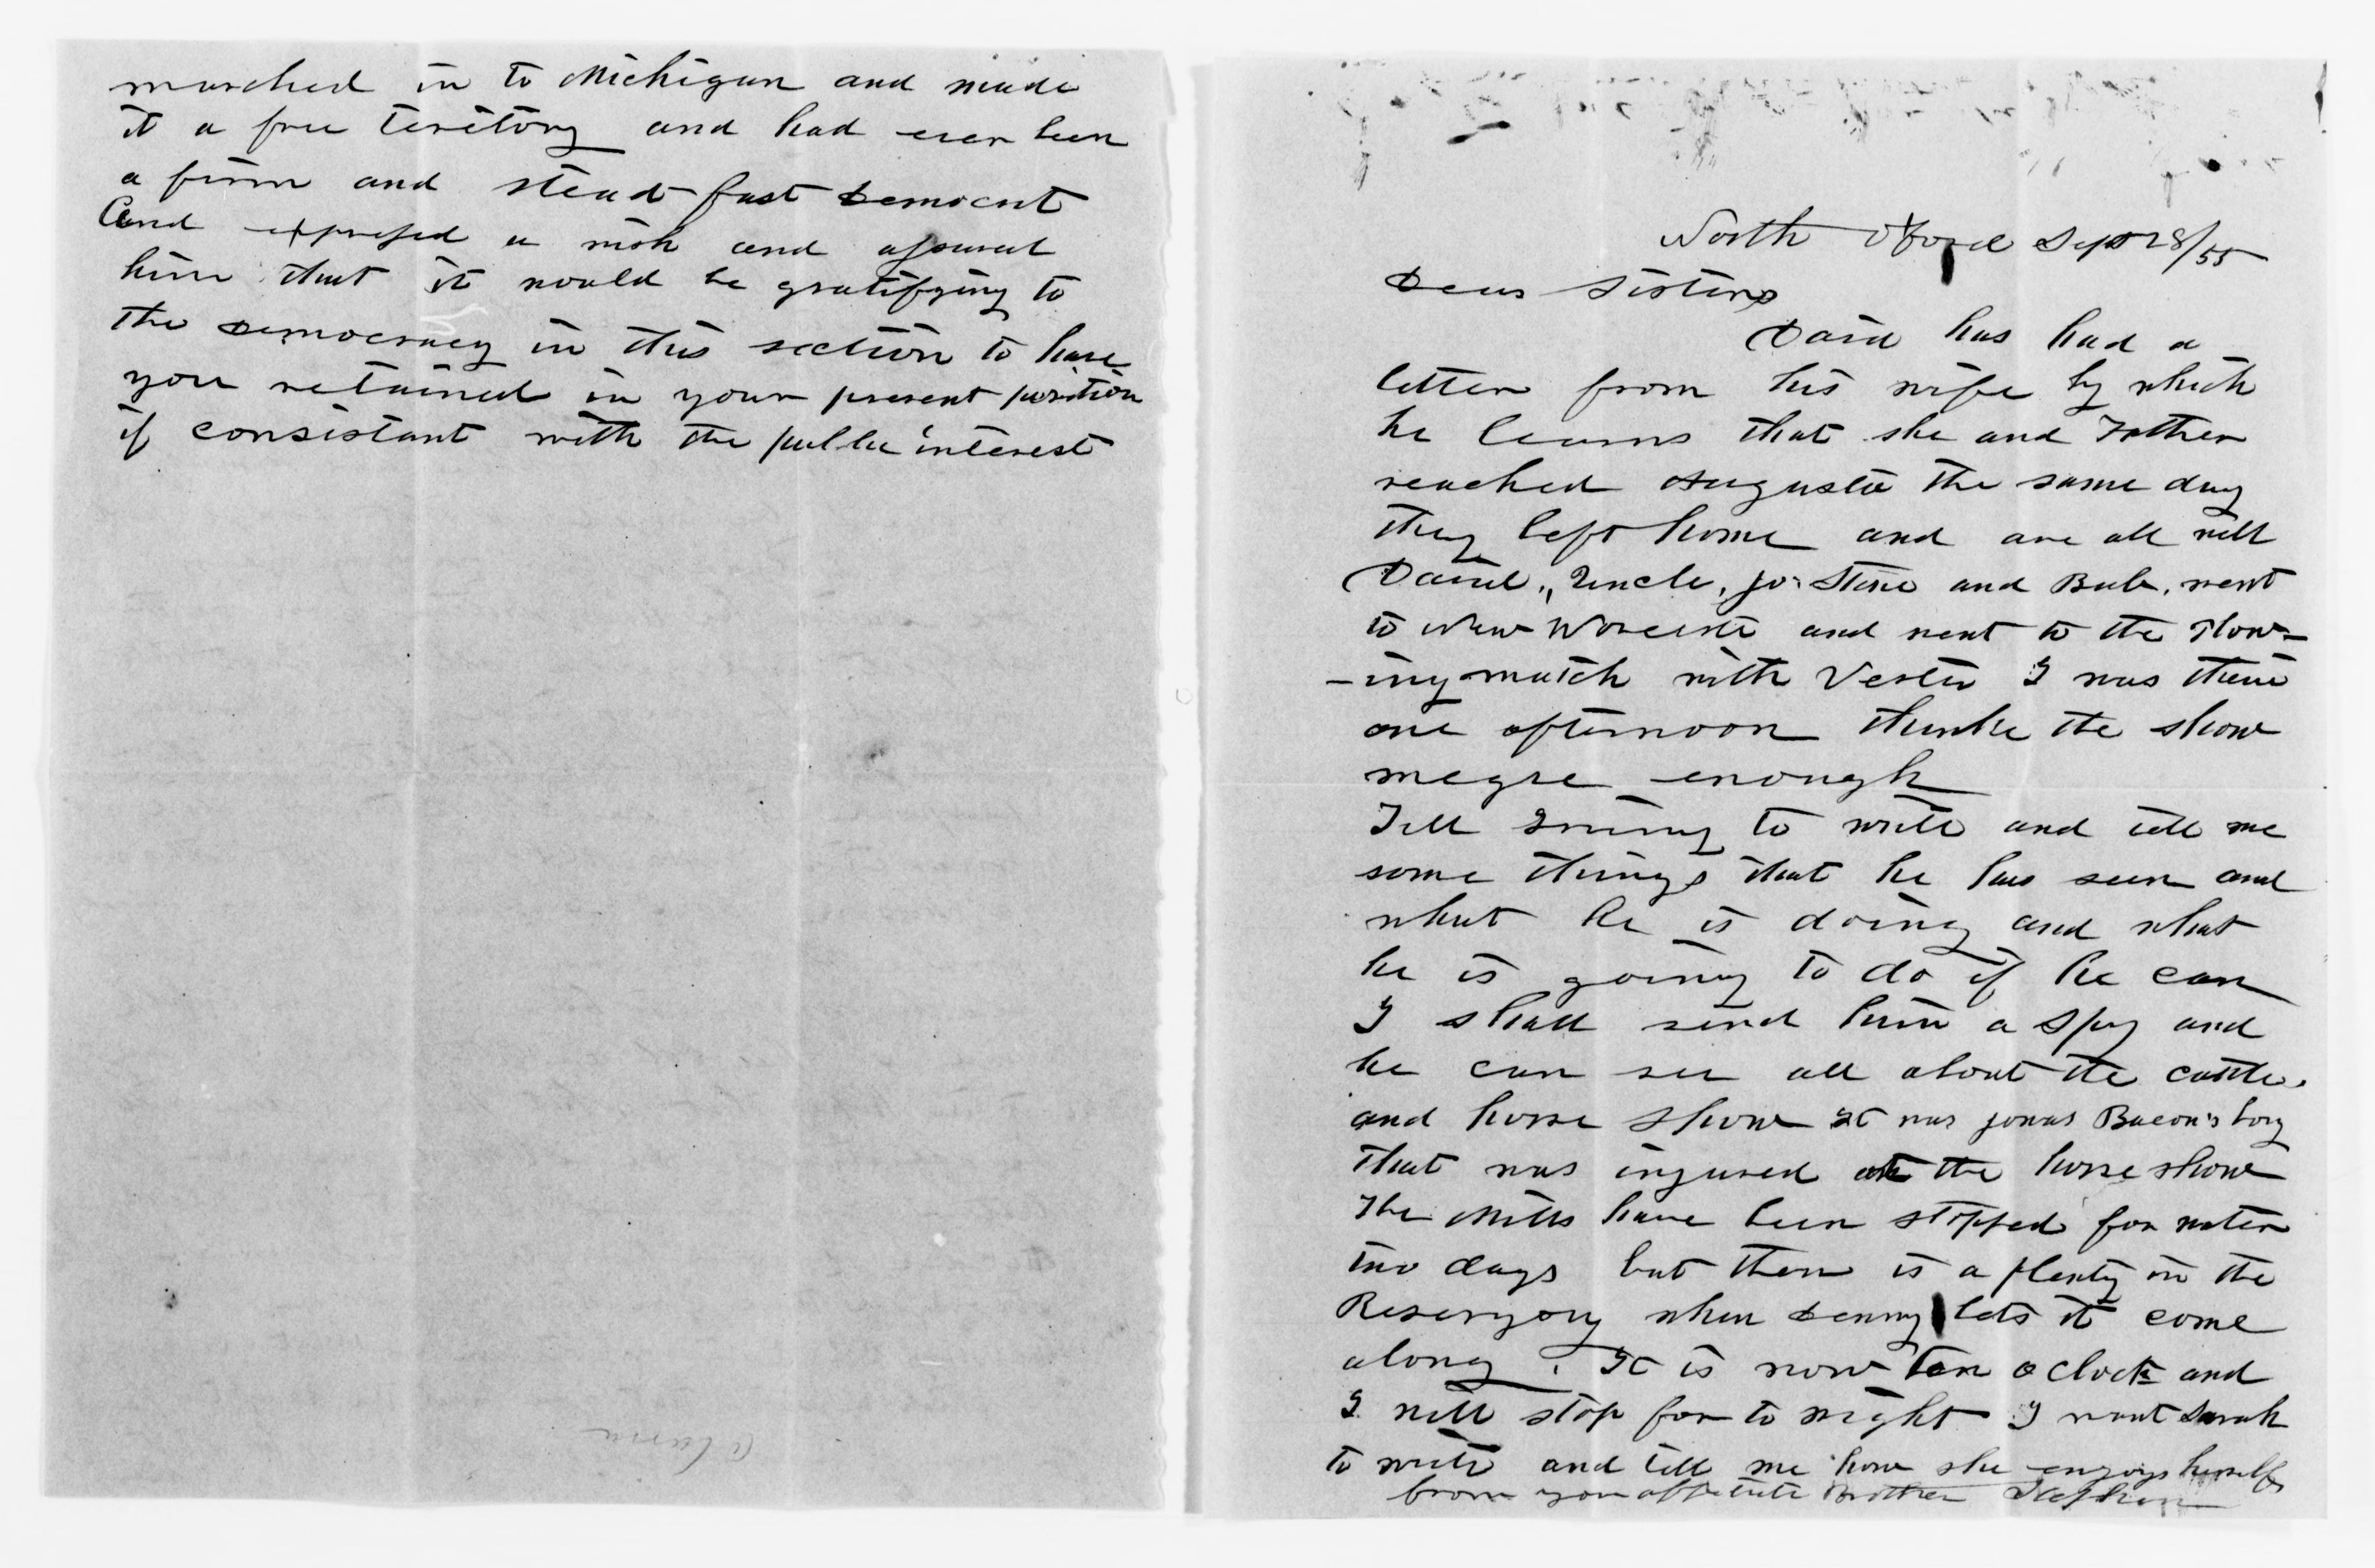 marched in to Michigan and made
it a free teretory and had ever been
a firm and stead fast Democrat
And expressed a wish and assured
him that it would be gratifying to
the Democracy in this section to have
you retained in your present position
if consistant with the public interest
North Oxford Sept 28/55
Dear Sisters
David has had a
letter from his wife by which
he learns that she and Father
reached Augusta the same day
they left home and are all well
David, Uncle, Jo. Stone and Bub. went
to New Worcester and went to the Plow-
-ing match with Vester I was there
one afternoon thinke the show
megre enough
Tell Irving to write and tell me
some things that he has seen and
what he is doing and what
he is going to do if he can
I shall send him a Spy and
he can see all about the cattle.
and horse show It was Jonas Bacon's boy
that was injured at the horse show
The Mills have been stopped for water
two days but there is a plenty in the
Reservyory when Denny lets it come
along. It is now ten o clock and
I will stop for to night I want Sarah
to write and tell me how she enjoys herself
from your Brother Stephen